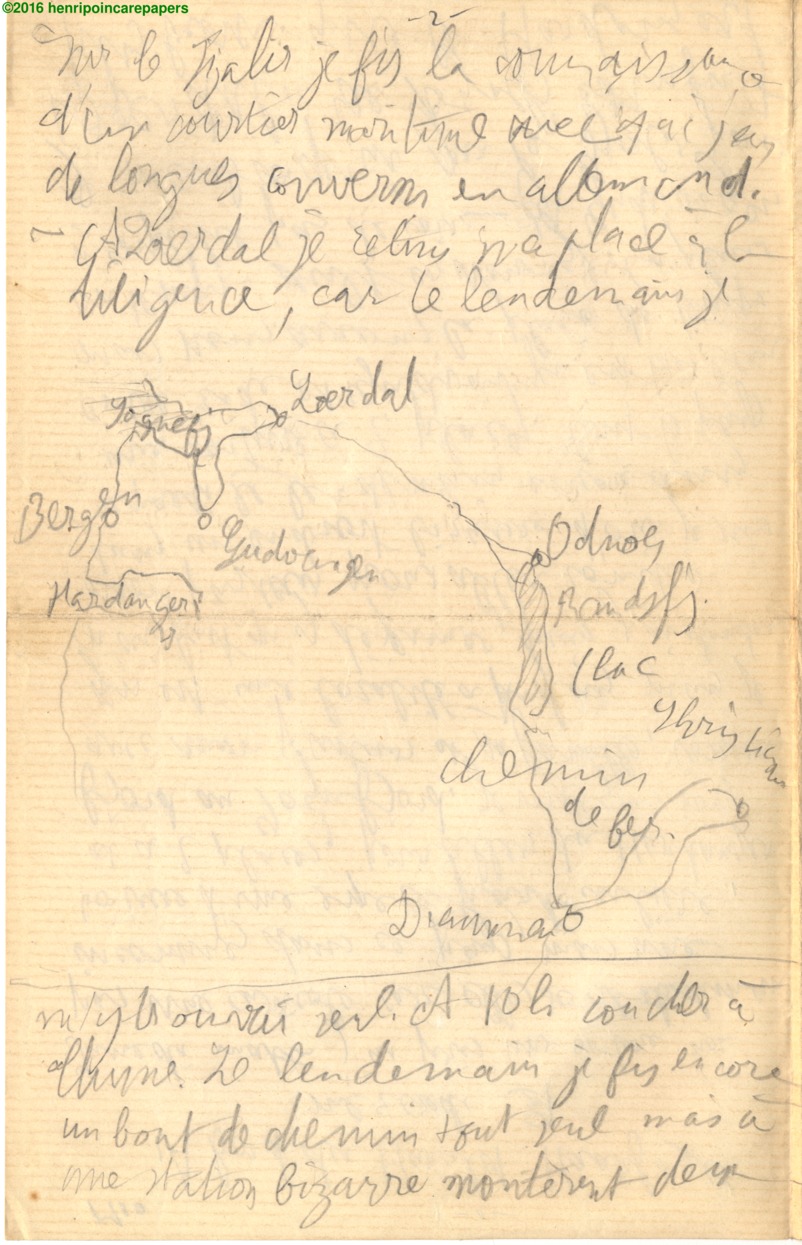 ©2016 henripoincarepapers
-2-
Sur le Fjalir je fis la connaissance
d'un courtier maritime avec qui j'eus
de longues convers en allemand.
– A Loerdal je retins ma place à la
diligence, car le lendemain je
Loerdal
Sognefj
Bergen
Gudvangen
Hardanger
Odnoes
Randsfj.
(lac
Christiania
chemin
de fer.
Drammen
m'y trouvai seul. A 10h coucher à
. Le lendemain je fis encore
un bout de chemin tout seul mais à
une station bizarre montèrent deux